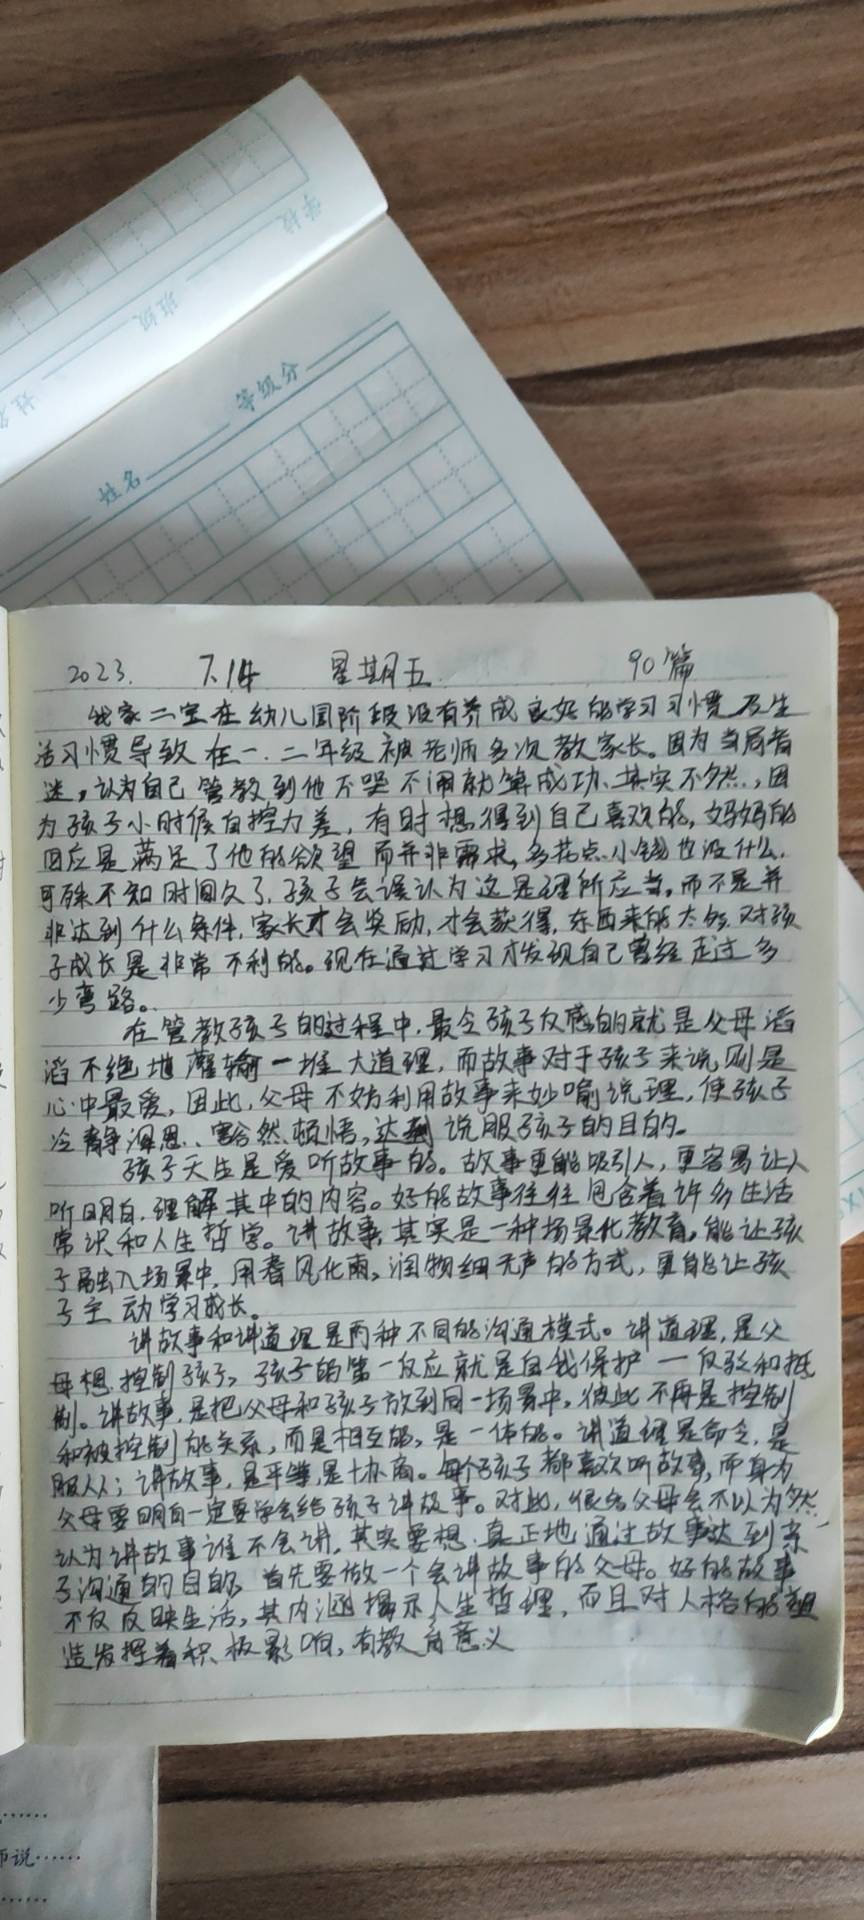 学校
班级
姓名
等级分
2023. 7.14 星期五 90篇
我家二宝在幼儿园阶段没有养成良好的学习习惯及生
活习惯导致在一.二年级被老师多次教家长。因为当局者
迷,认为自己管教到他不哭不闹就算成功、其实不然,因
为孩子小时候自控力差,有时想得到自己喜欢的,妈妈的
回应是满足了他的欲望而并非需求,多花点小钱也没什么,
可殊不知时间久了,孩子会误认为这是理所应当,而不是并
非达到什么条件,家长才会奖励,才会获得,东西来的太的对孩
子成长是非常不利的。现在通过学习才发现自己曾经走过多
少弯路。
在管教孩子的过程中,最令孩子反感的就是父母滔
滔不绝地灌输一堆大道理,而故事对于孩子来说则是
心中最爱,因此,父母不妨利用故事来妙喻说理,使孩子
冷静深思、豁然顿悟,达到说服孩子的目的。
孩子天生是爱听故事的。故事更能吸引人,更容易让人
听明白,理解其中的内容。好的故事往往包含着许多生活
常识和人生哲学。讲故事,其实是一种场景化教育,能让孩
子融入场景中,用春风化雨,润物细无声的方式,更能让孩
子主动学习成长。
讲故事和讲道理是两种不同的沟通模式。讲道理,是父
母想控制孩子,孩子的第一反应就是自我保护一反驳和抵
制。讲故事,是把父母和孩子放到同一场景中,彼此不再是控制
和被控制的关系,而是相互的,是一体的。讲道理是命令,是
服从;讲故事,是平等,是协商。每个孩子都喜欢听故事,而身为
父母要明白一定要学会给孩子讲故事。对此,很多父母会不以为然,
认为讲故事谁不会讲,其实要想真正地通过故事达到亲
子沟通的目的,首先要做一个会讲故事的父母。好的故事
不仅反映生活,其内涵揭示人生哲理,而且对人格的塑
造发挥着积极影响,有教育意义
师说……